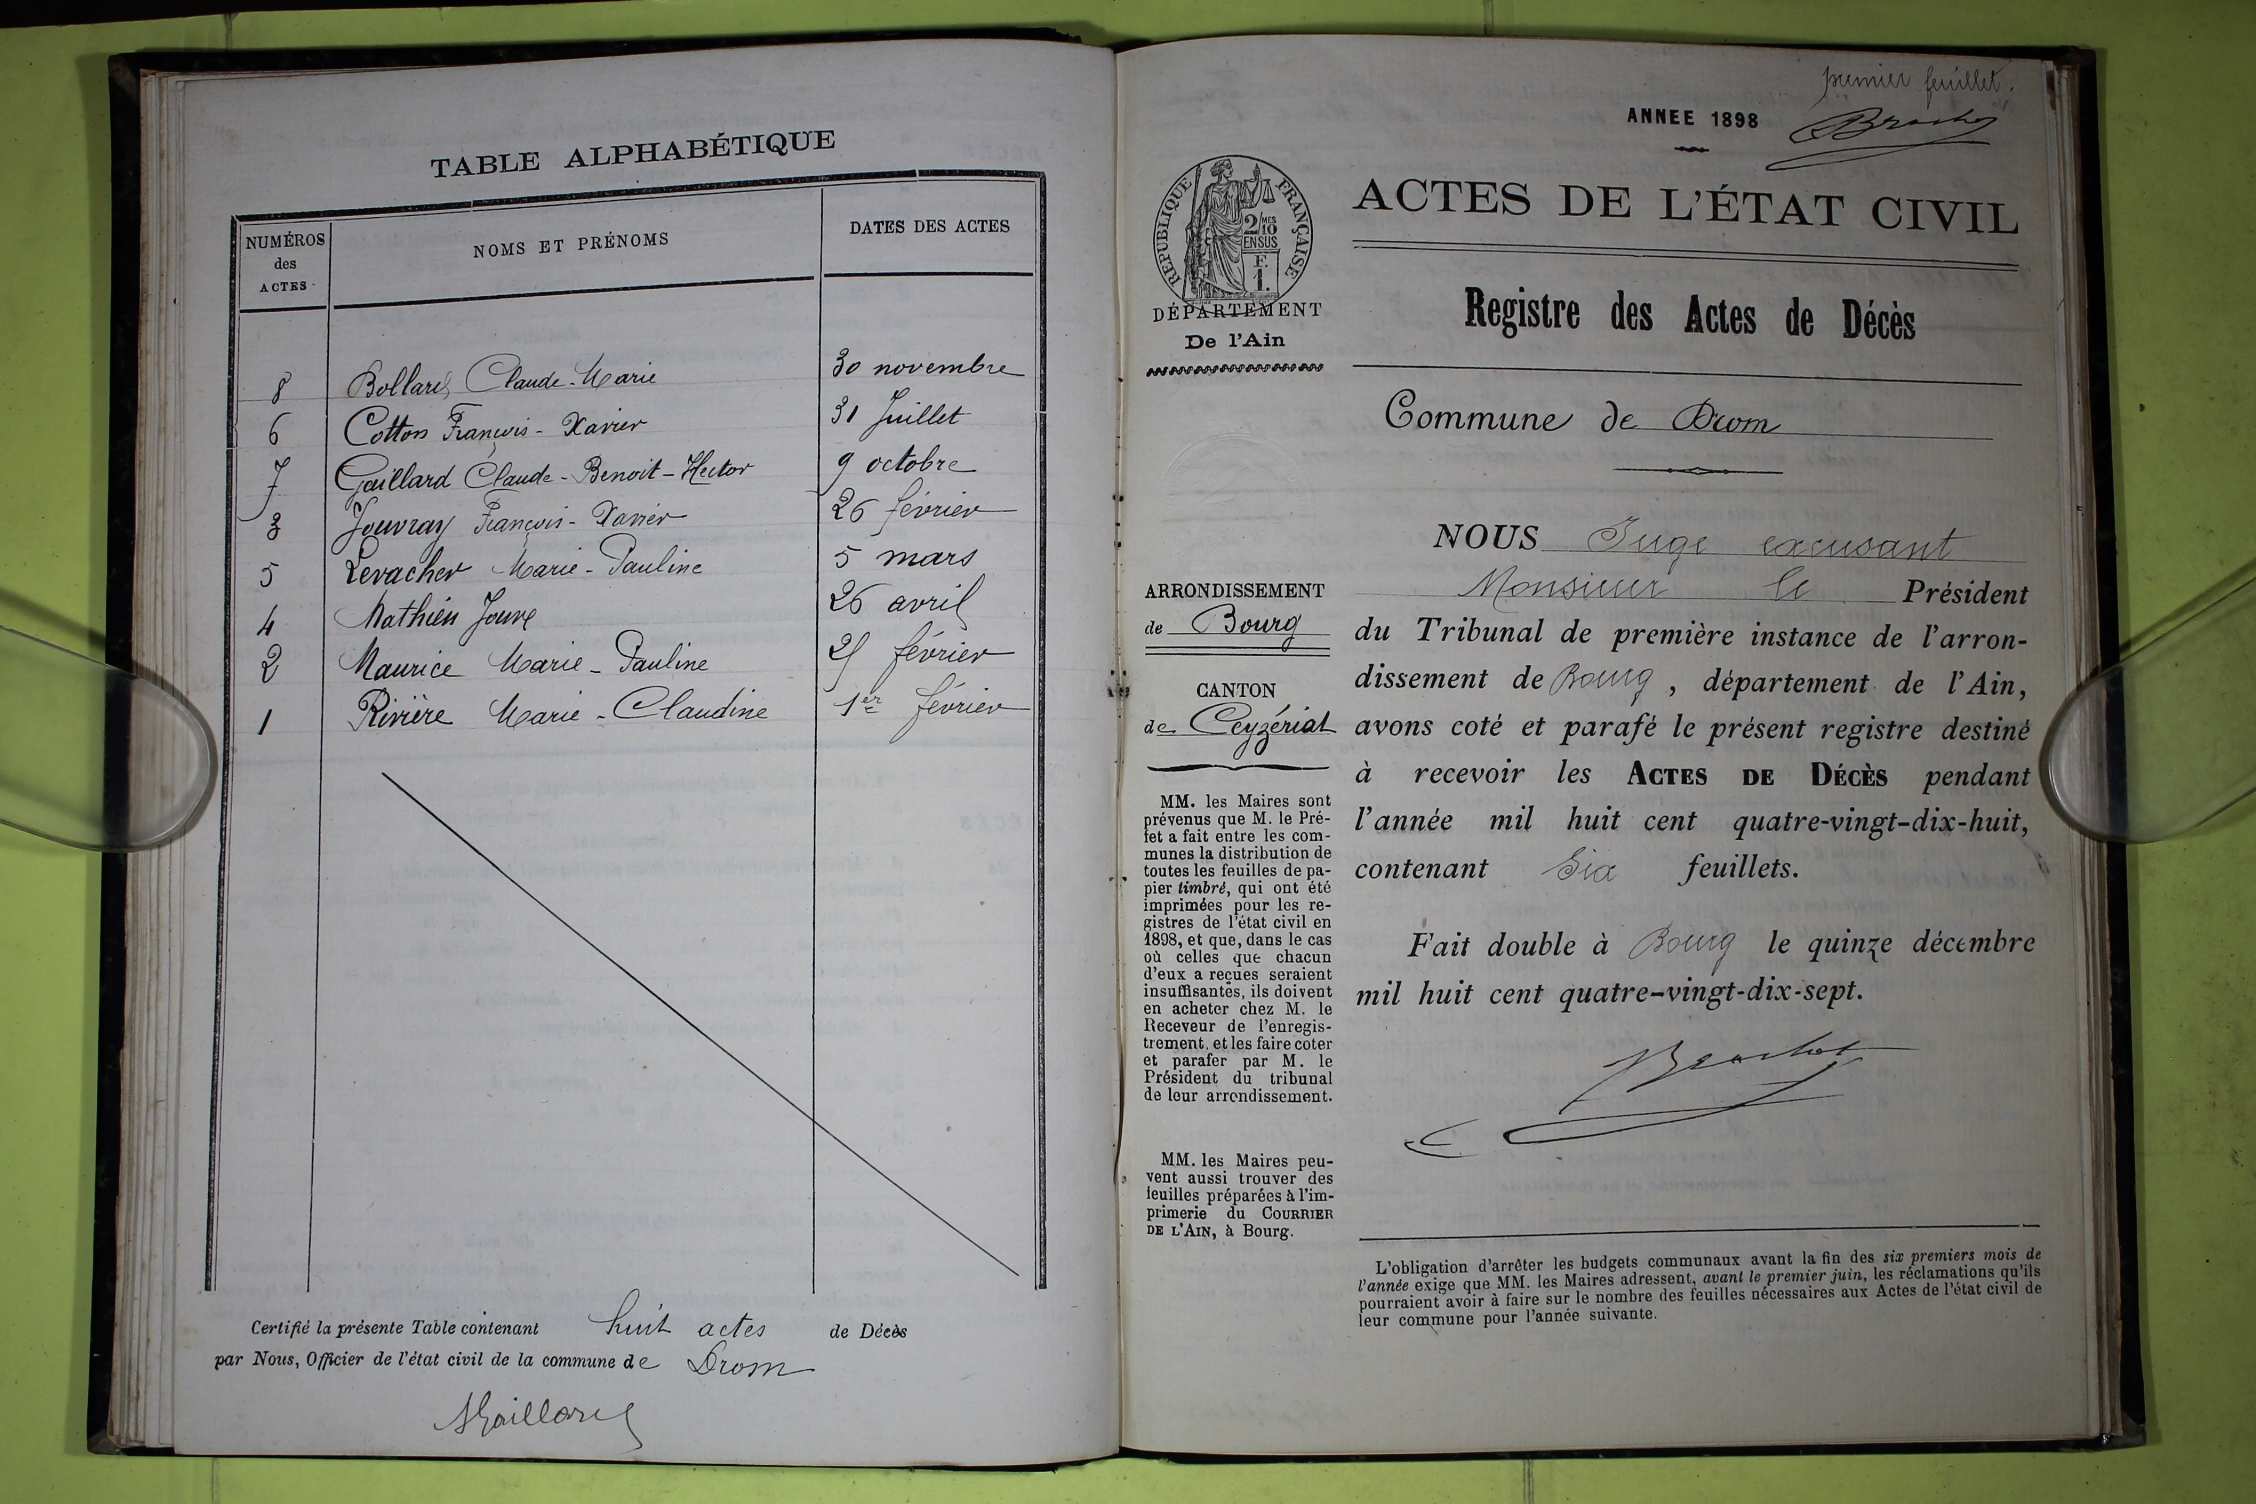 TABLE ALPHABÉTIQUE
NUMÉROS
des
ACTES
NOMS ET PRÉNOMS
DATES DES ACTES
8 Bollard Claude-Marie 30 novembre
6 Cotton François-Xavier 31 Juillet
7 Gaillard Claude-Benoit-Hector 9 octobre
3 Jouvray François-Xavier 26 février
5 Levacher Marie-Pauline 5 mars
4 Mathieu Jouve 26 avril
2 Maurice Marie-Pauline février
1 Rivière Marie-Claudine 1er février
Certifié la présente Table contenant huit actes de Décès
par Nous, Officier de l'état civil de la commune de Drom
Gaillard
premier feuillet.
ANNEE 1898
Brochot
RÉPUBLIQUE FRANÇAISE
2/10 MES
EN SUS
F.
1.
DÉPARTEMENT
De l'Ain
ACTES DE L'ÉTAT CIVIL
Registre des Actes de Décès
Commune de Drom
ARRONDISSEMENT
de Bourg
CANTON
de Ceyzériat
MM. les Maires sont
prévenus que M. le Pré-
fet a fait entre les com-
munes la distribution de
toutes les feuilles de pa-
pier timbré, qui ont été
imprimées pour les re-
gistres de l'état civil en
1898, et que, dans le cas
où celles que chacun
d'eux a reçues seraient
insuffisantes, ils doivent
en acheter chez M. le
Receveur de l'enregis-
trement, et les faire coter
et parafer par M. le
Président du tribunal
de leur arrondissement.
MM. les Maires peu-
vent aussi trouver des
feuilles préparées à l'im-
primerie du COURRIER
DE L'AIN, à Bourg.
NOUS Juge excusant
Monsieur le Président
du Tribunal de première instance de l'arron-
dissement de Bourg, département de l'Ain,
avons coté et parafé le présent registre destiné
à recevoir les ACTES DE DÉCÈS pendant
l'année mil huit cent quatre-vingt-dix-huit,
contenant Six feuillets.
Fait double à Bourg le quinze décembre
mil huit cent quatre-vingt-dix-sept.
Brochot
L'obligation d'arrêter les budgets communaux avant la fin des six premiers mois de
l'année exige que MM. les Maires adressent, avant le premier juin, les réclamations qu'ils
pourraient avoir à faire sur le nombre des feuilles nécessaires aux Actes de l'état civil de
leur commune pour l'année suivante.